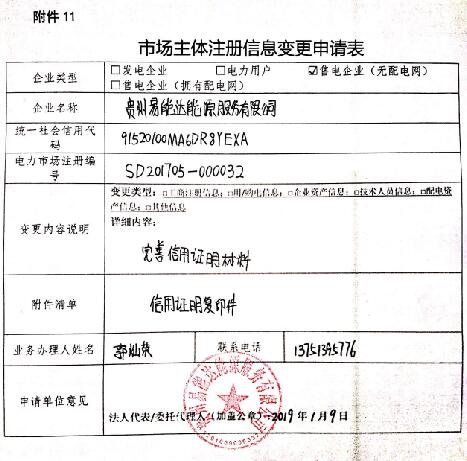 附件 11
市场主体注册信息变更申请表
企业类型 □发电企业 □电力用户 ☑售电企业（无配电网）
□售电企业（拥有配电网）
企业名称 贵州易能达能源服务有限公司
统一社会信用代码 91520100MA6DR8YEXA
电力市场注册编号 SD201705-000032
变更内容说明 变更类型：□工商注册信息；□用/购电信息；□企业资产信息；□技术人员信息；□配电资
产信息；□其他信息
详细内容：
完善信用证明材料
附件清单 信用证明复印件
业务办理人姓名 李灿荣 联系电话 13751395776
申请单位意见
贵州易能达能源服务有限公司
法人代表/委托代理人（加盖公章） 2019年1月9日